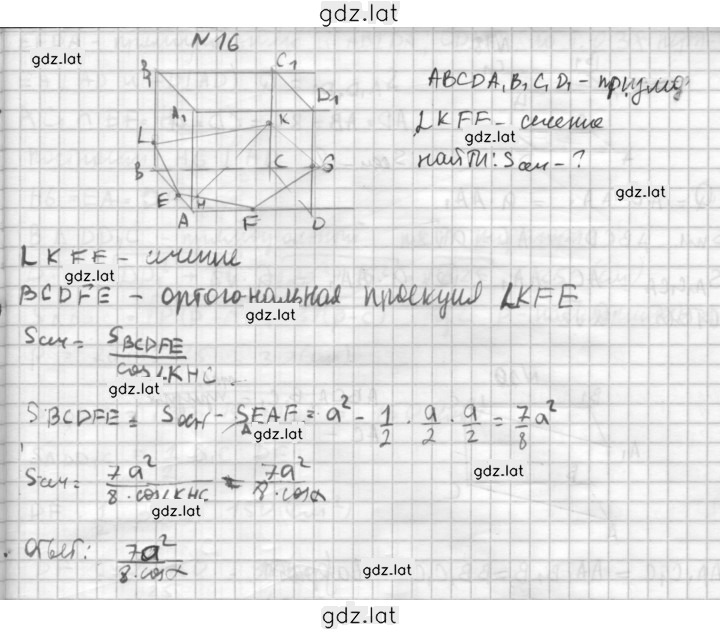 gdz.lat
N16
gdz.lat
B₁ C₁
A₁ D₁
L K
B C G
E H
A F D
ABCDA₁B₁C₁D₁ - призма
LKFE - сечение
gdz.lat
найти: Sсеч - ?
gdz.lat
LKFE - сечение
gdz.lat
BCDFE - ортогональная проекция LKFE
gdz.lat
Sсеч = S BCDFE / cos∠KHC
gdz.lat
S BCDFE = Sосн - S EAF = a² - 1/2 · a/2 · a/2 = 7/8 a²
gdz.lat
Sсеч = 7a² / 8·cos∠KHC = 7a² / 8·cosα
gdz.lat
gdz.lat
Ответ: 7a² / 8·cosα
gdz.lat
gdz.lat